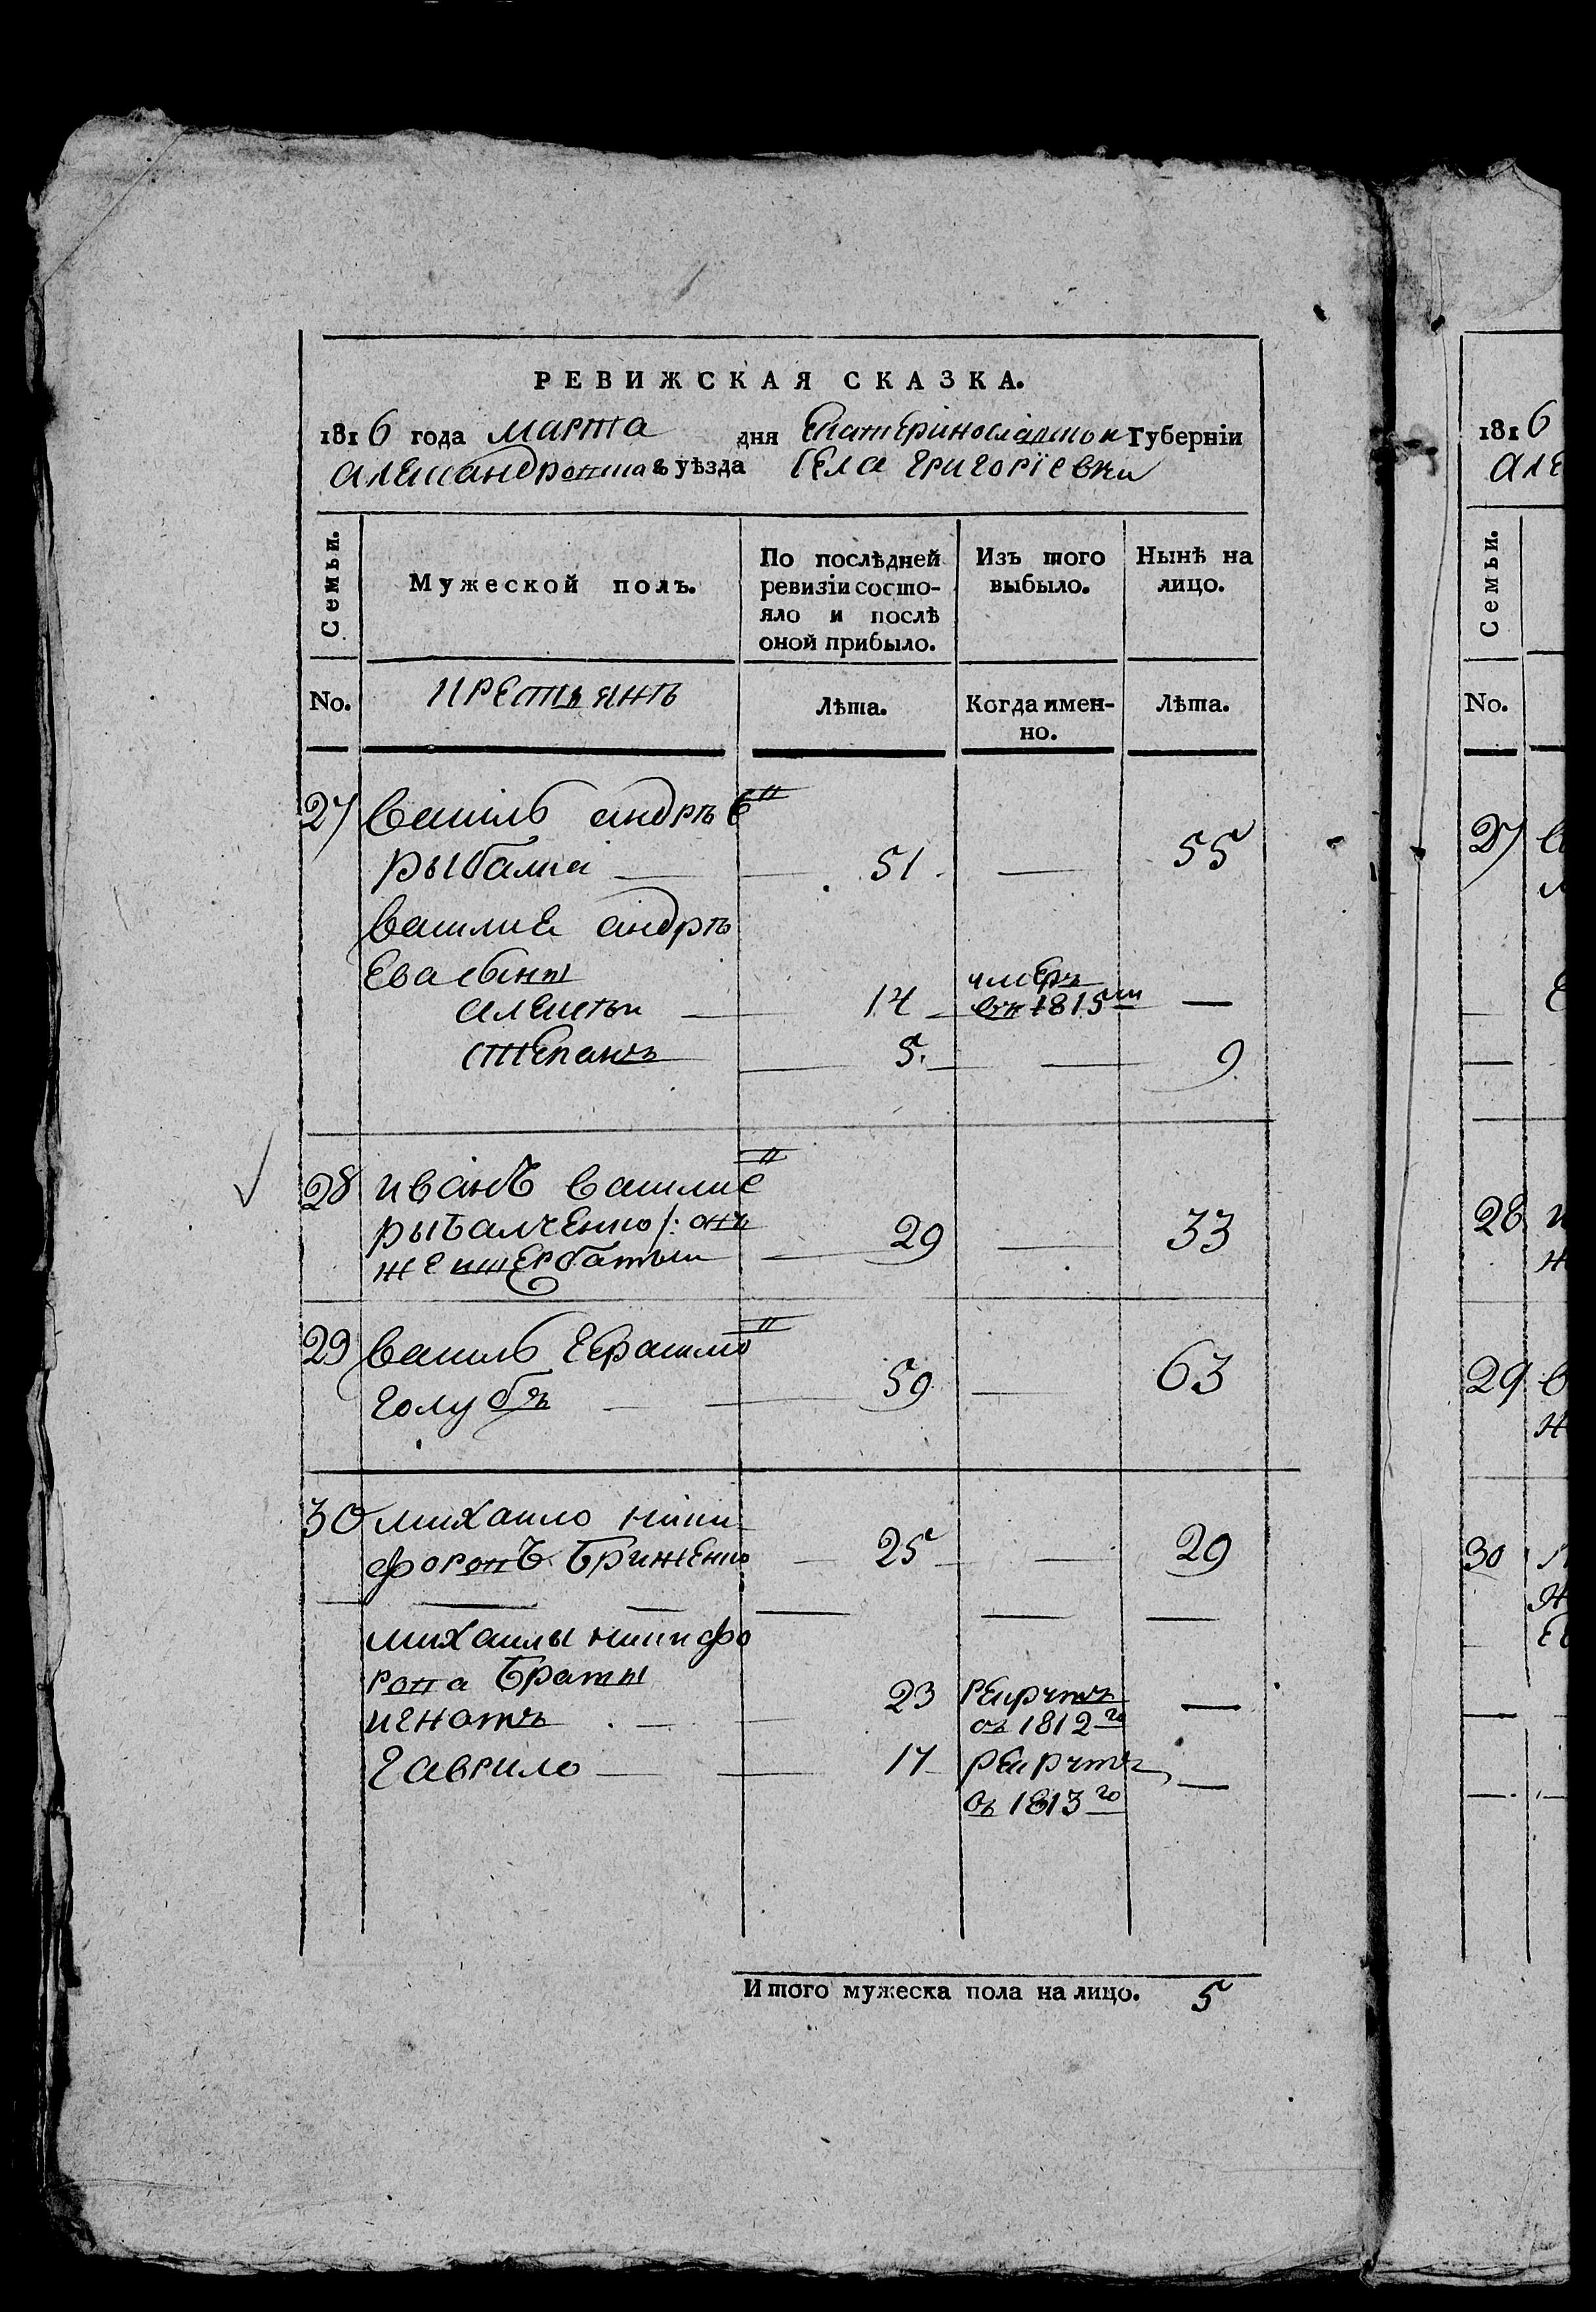 РЕВИЖСКАЯ СКАЗКА.
1816 года марта дня Екатеринославской Губерніи
Александровскаго уѣзда Села Григоріевки
Семьи.
Мужеской полъ.
По послѣдней ревизіи состояло и послѣ оной прибыло.
Изъ того выбыло.
Нынѣ на лицо.
No.
крестьянъ
Лѣта.
Когда именно.
Лѣта.
27 Василь андрѣе
рыбалка 51 — 55
василие андрѣ
ева сыны
алексѣй 14 умеръ въ 1815м —
степанъ 5. — 9
28 иванъ василие
рыбалченко /: онъ
же щербатый 29 — 33
29 василь Герасимо
голубъ 59 — 63
30 михаило ники
форовъ Бриженко 25 — 29
михаилы никифо
рова браты
игнатъ 23 рекрутъ въ 1812го —
гаврило 17 рекрутъ въ 1813го —
Итого мужеска пола на лицо. 5
1816
Але
Семьи.
No.
27
28
29
30